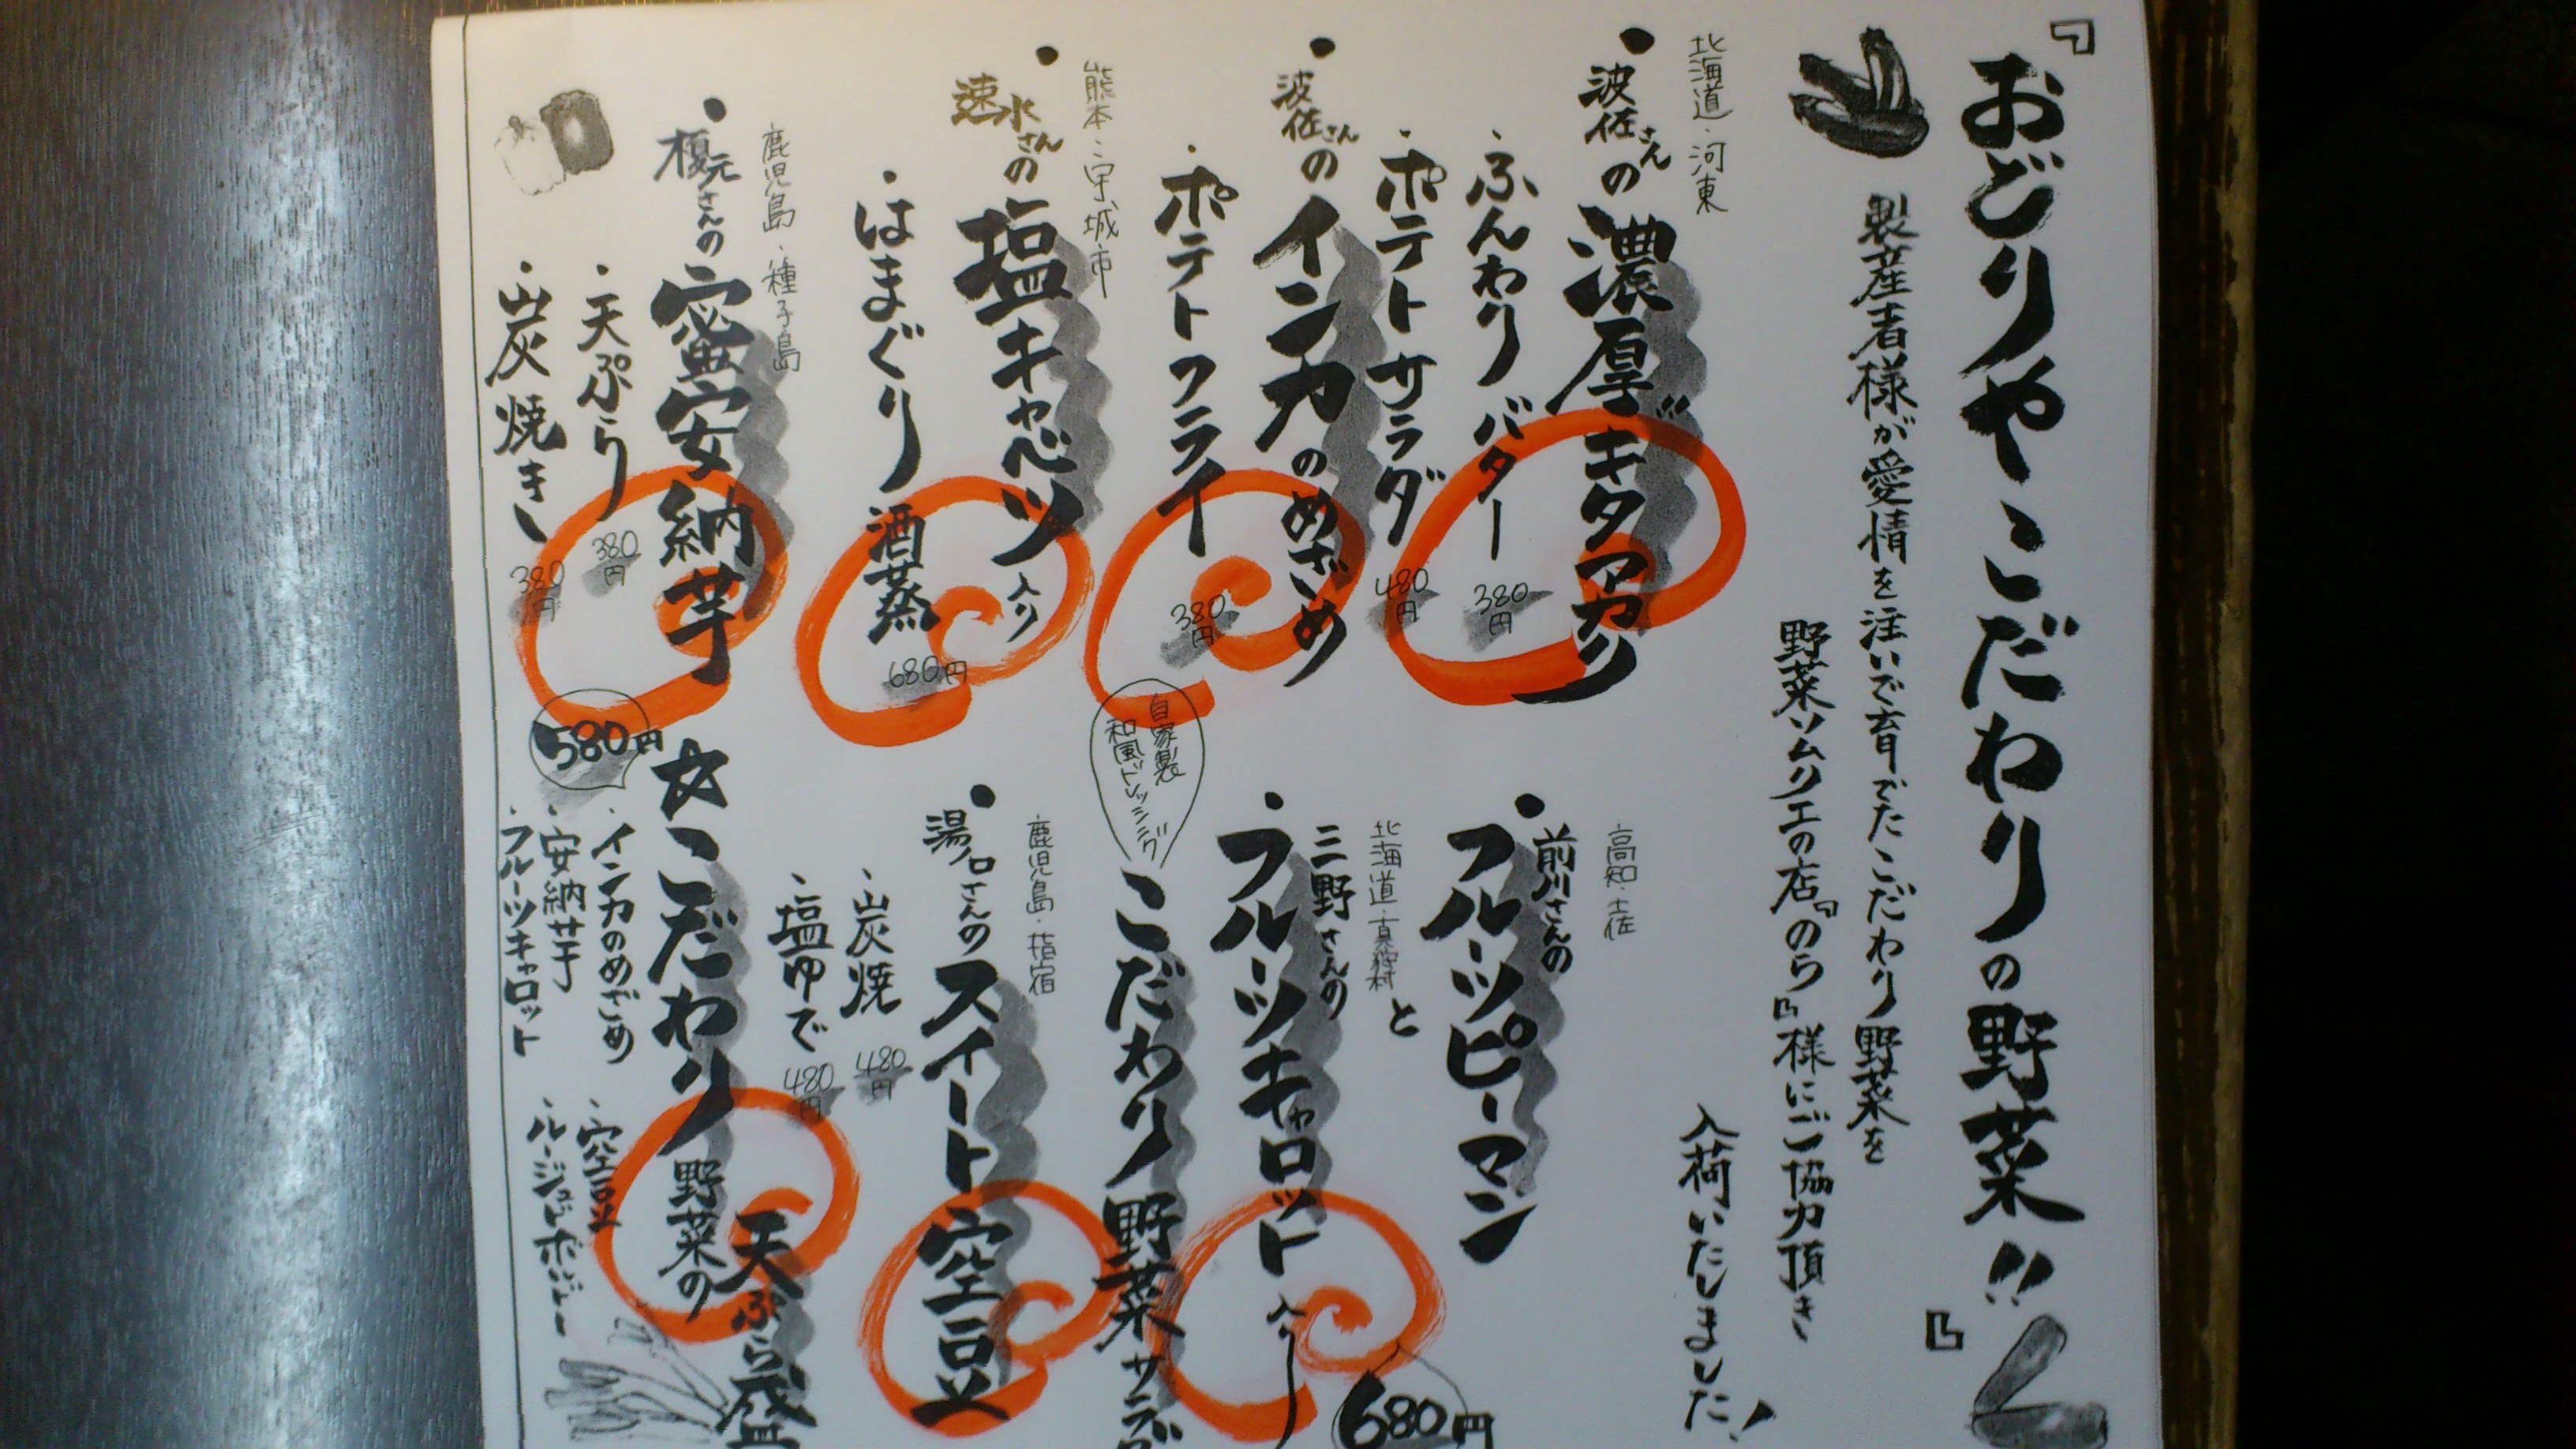 『おどりやこだわりの野菜!!』
製産者様が愛情を注いで育てたこだわり野菜を
野菜ソムリエの店『のら』様にご協力頂き
入荷いたしました!
北海道・河東
・波佐さんの濃厚キタアカリ
・ふんわりバター 380円
・ポテトサラダ 480円
・波佐さんのインカのめざめ
・ポテトフライ 380円
熊本・宇城市
・速水さんの塩キャベツ入り
・はまぐり酒蒸 680円
鹿児島・種子島
・榎元さんの蜜安納芋
・天ぷら 380円
・炭焼き 380円
高知・土佐
・前川さんの
フルーツピーマン
と
北海道・真狩村
三野さんの
・フルーツキャロット入り
自家製
和風ドレッシング
こだわり野菜サラダ
680円
鹿児島・指宿
・湯ノ口さんのスイート空豆
・炭焼 480円
・塩ゆで 480円
☆こだわり野菜の天ぷら盛
580円
・インカのめざめ
・安納芋
・フルーツキャロット
・空豆